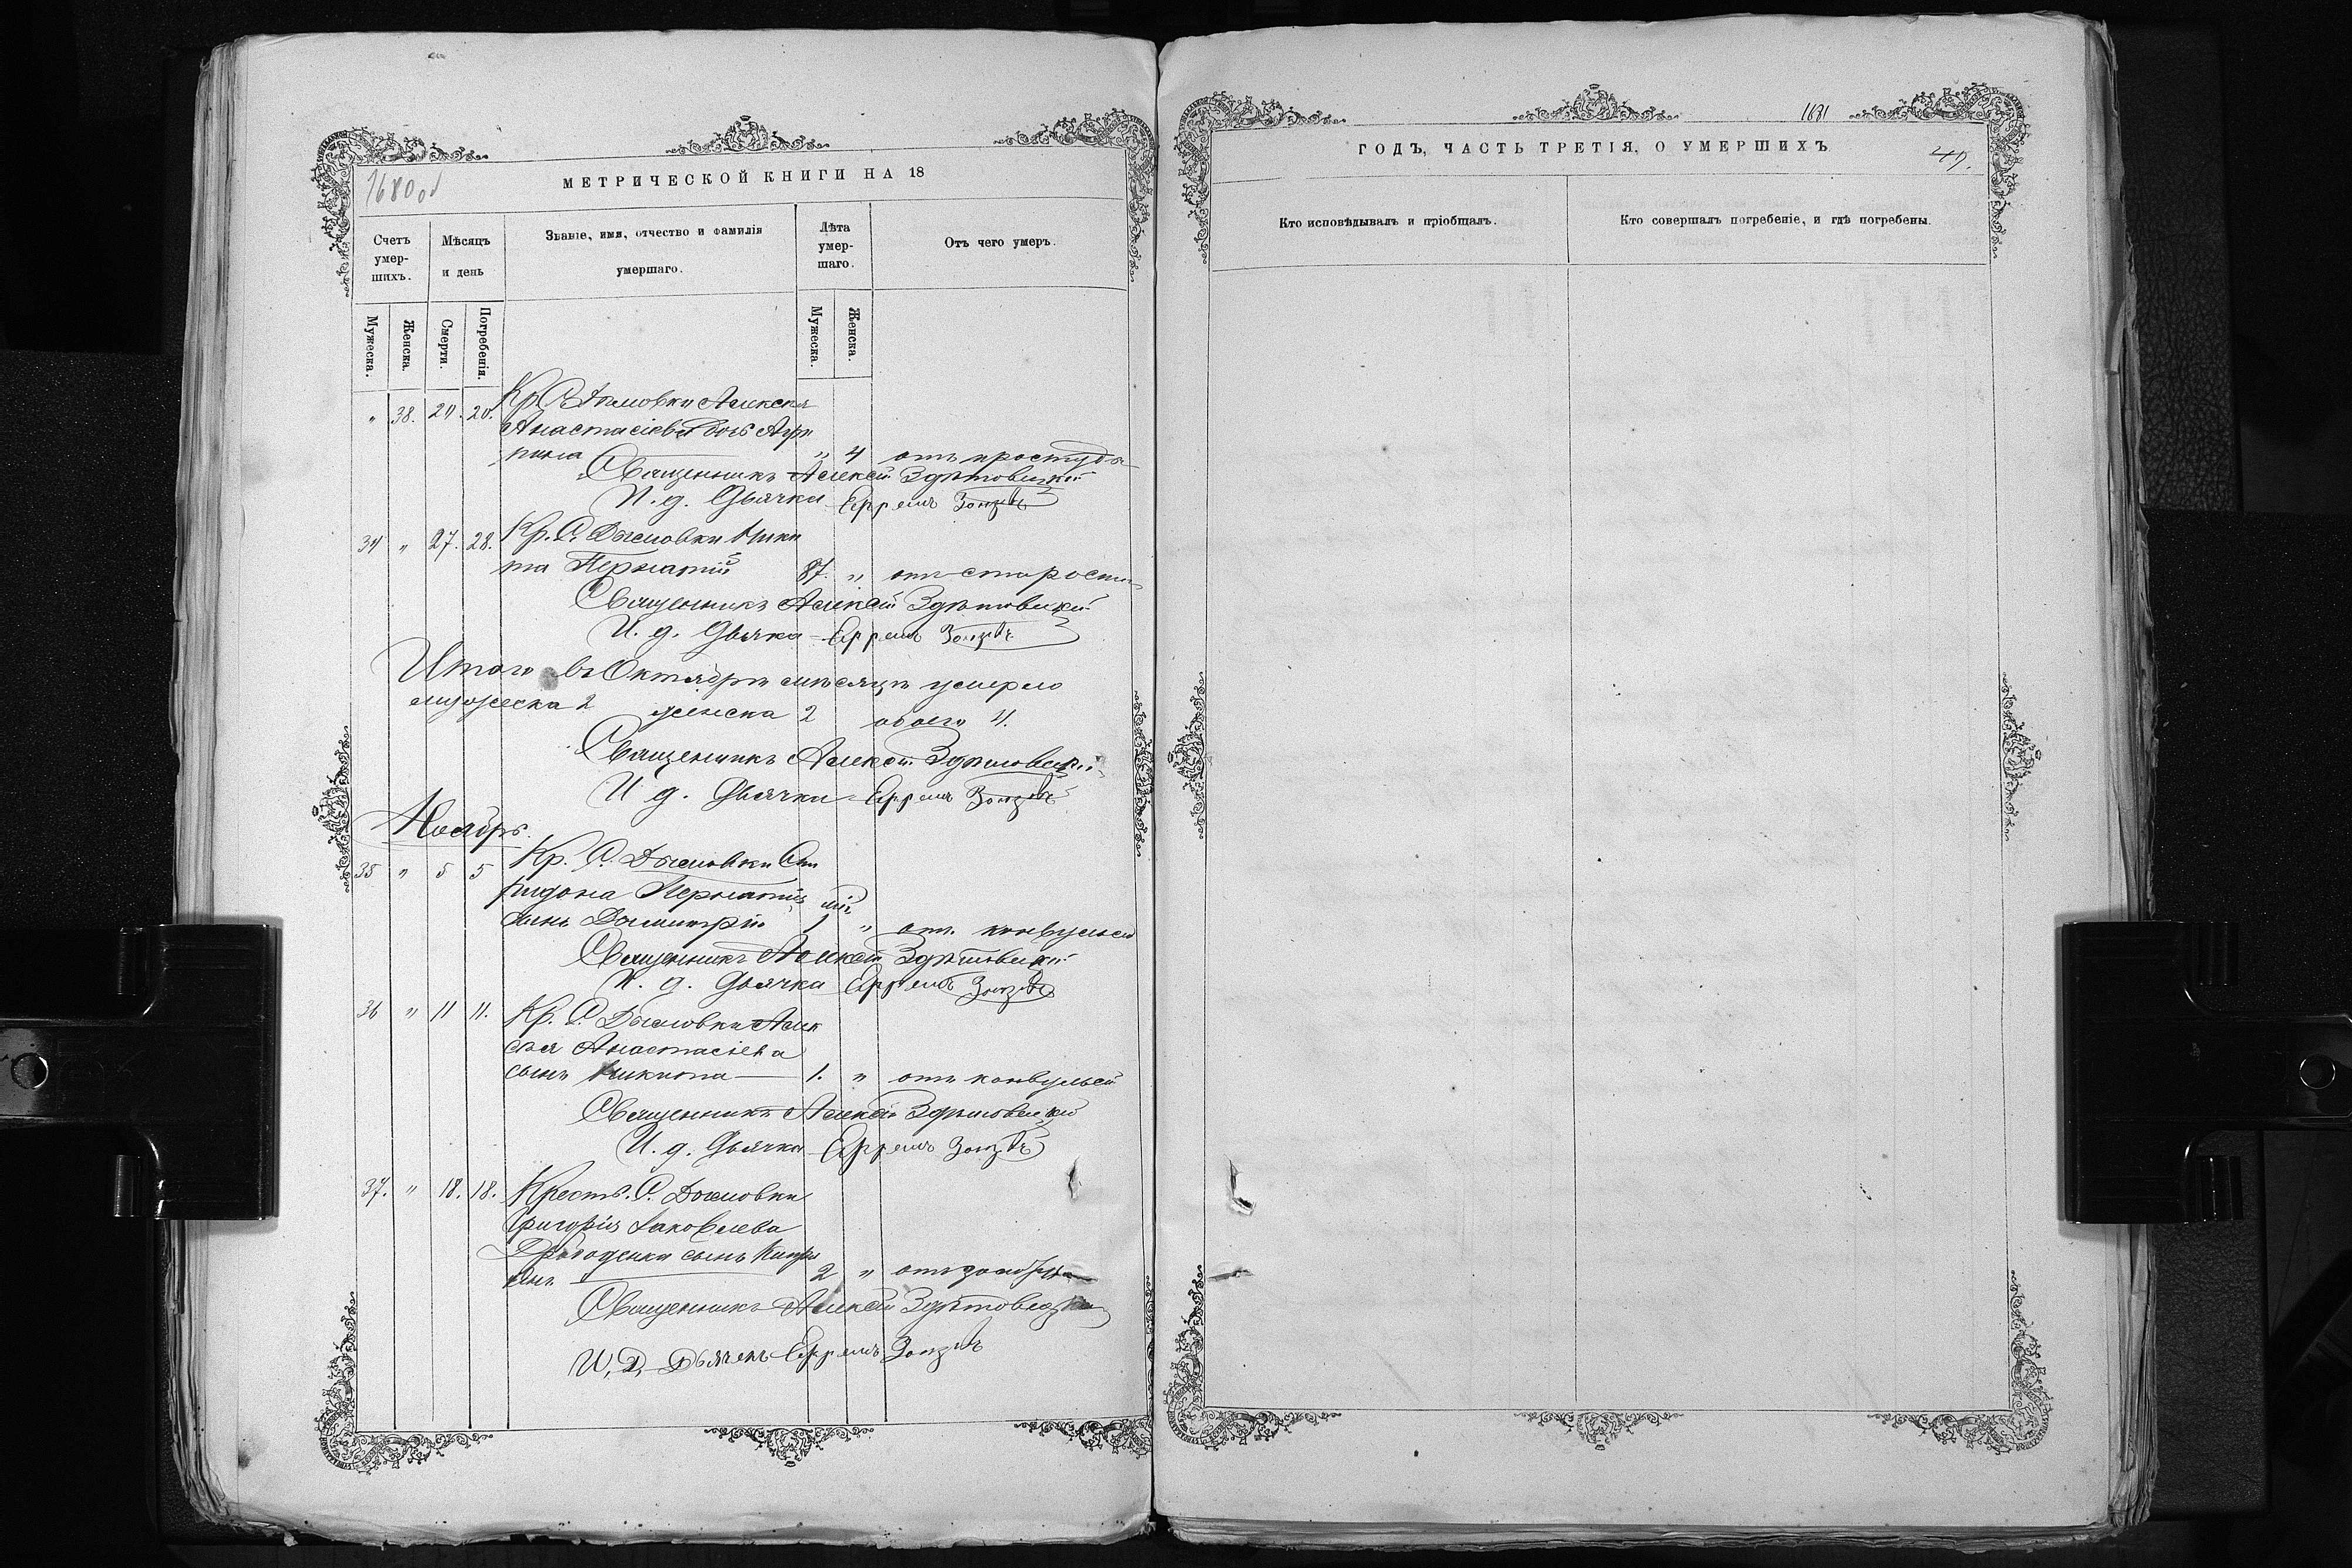 1680 об
МЕТРИЧЕСКОЙ КНИГИ НА 18
Счетъ умер-шихъ.
Мѣсяцъ и день
Званіе, имя, отчество и фамилія умершаго.
Лѣта умер-шаго.
Отъ чего умеръ.
Мужеска.
Женска.
Смерти.
Погребенія.
Мужеска.
Женска.
Кр. С. Дымовки Алексѣя
" 38. 20. 20. Анастасіева дочь Агри
пина " 4 отъ простуды
Священникъ Алексѣй Здѣтовецкій
И. д. Дьячка Ефремъ
34 " 27. 28. Кр. С. Дымовки Ники
та Пернатій 87. " отъ старости
Священникъ Алексѣй Здѣтовецкій
И. д. Дьячка Ефремъ
Итого въ Октябрѣ мѣсяцѣ умерло
мужеска 2 женска 2 обоего 4.
Священникъ Алексѣй Здѣтовецкій
И. д. Дьячка Ефремъ
Ноябрь.
35 " 5 5 Кр. С. Дымовки Спи
ридона Пернатія
сынъ Димитрій 1 " отъ конвульсій
Священникъ Алексѣй Здѣтовецкій
И. д. Дьячка Ефремъ
36 " 11 11. Кр. С. Дымовки Алек
сѣя Анастасіева
сынъ Никита 1. " отъ конвульсій
Священникъ Алексѣй Здѣтовецкій
И. д. Дьячка Ефремъ
37. " 18. 18. Крест. С. Дымовки
Григорія Іаковлева
сынъ Кипрі
анъ 2 "
Священникъ Алексѣй Здѣтовецкій
И. Д. Дьячекъ Ефремъ
1681
ГОДЪ, ЧАСТЬ ТРЕТІЯ, О УМЕРШИХЪ
49.
Кто исповѣдывалъ и пріобщалъ.
Кто совершалъ погребеніе, и гдѣ погребены.